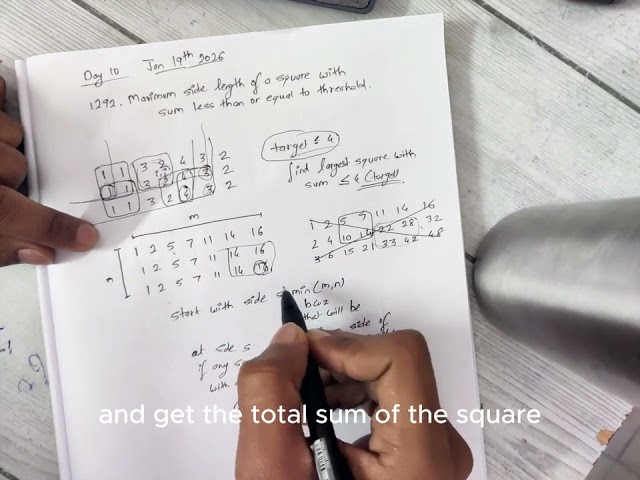 Day 10 Jan 19th 2026
1292. Maximum side length of a square with
sum less than or equal to threshold.
target ≤ 4
find largest square with
sum ≤ 4 (target)
1 1 3 2 4 3 2
1 1 3 2 4 3 2
1 1 3 2 4 3 2
m
n
1 2 5 7 11 14 16
1 2 5 7 11 14 16
1 2 5 7 11 14
1 2 5 7 11 14 16
2 4 10 14 22 28 32
3 6 15 21 33 42 48
start with side min(m,n)
bcoz
that will be
at side s side of
if any
with
and get the total sum of the square